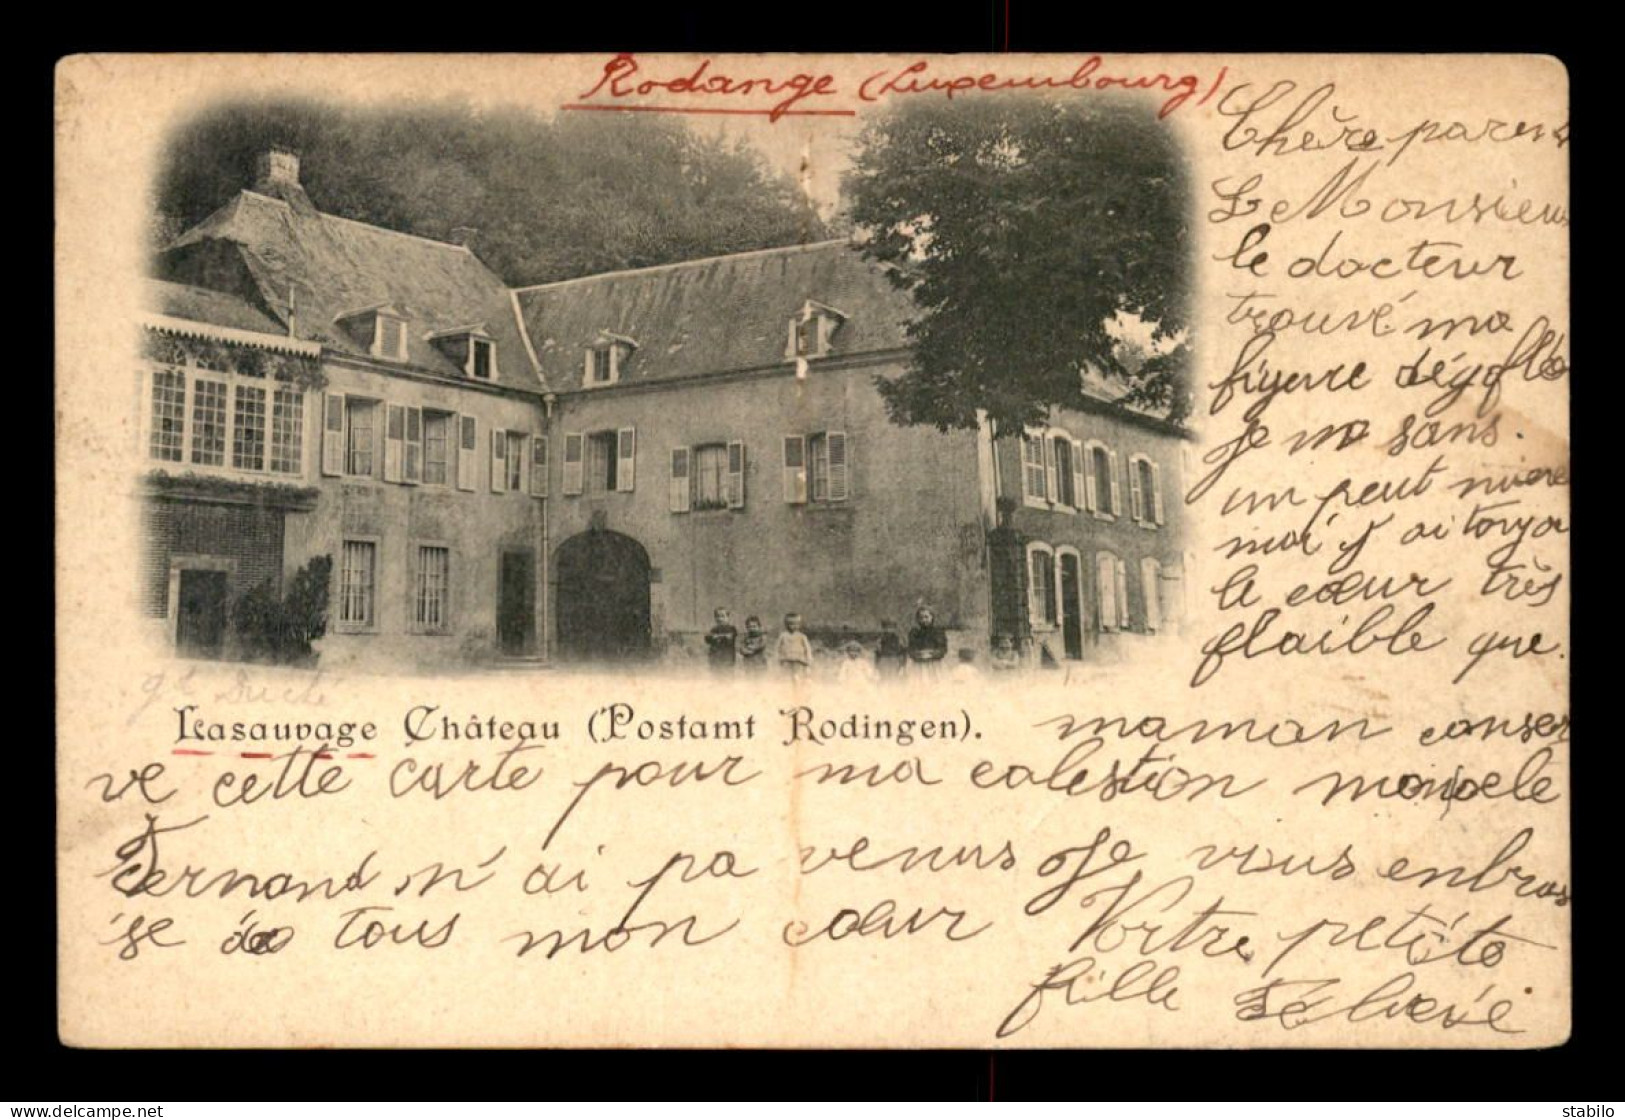 Rodange (Luxembourg)
Chère parent
Le Monsieur
le docteur
trouvé ma
figure dégoflé
je me sans
un peut miere
moi j ai toujo
le cœur très
flaible que
gd Duché
Lasauvage Château (Postamt Rodingen).
maman conser
ve cette carte pour ma colestion
Fernand n'ai pa venus Je vous enbras
se de tous mon cœur Vortre petite
fille